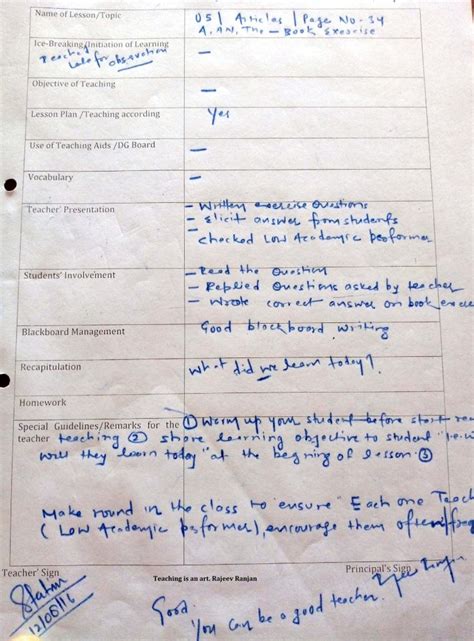 Name of Lesson/Topic 05| Articles | Page No - 34
A, AN, The - Book Exercise
Ice-Breaking/Initiation of Learning —
Reached late for observation
Objective of Teaching —
Lesson Plan /Teaching according Yes
Use of Teaching Aids /DG Board —
Vocabulary —
Teacher' Presentation - Written exercise Questions
- Elicit answer from students
- checked Low Academic performer
Students' Involvement - Read the Question
- Replied Questions asked by teacher
- Wrote correct answer on book exerc
Blackboard Management Good blackboard writing
Recapitulation what did we learn today?
Homework
Special Guidelines/Remarks for the teacher
① Warm up your student before start
teaching ② share learning objective to student
will they learn today" at the begning of lesson. ③
Make round in the class to "ensure" Each one Teach
(Low Academic performer), encourage them often
Teacher' Sign
12/08/16
Teaching is an art. Rajeev Ranjan
Principal's Sign
Good.
You can be a good teacher.